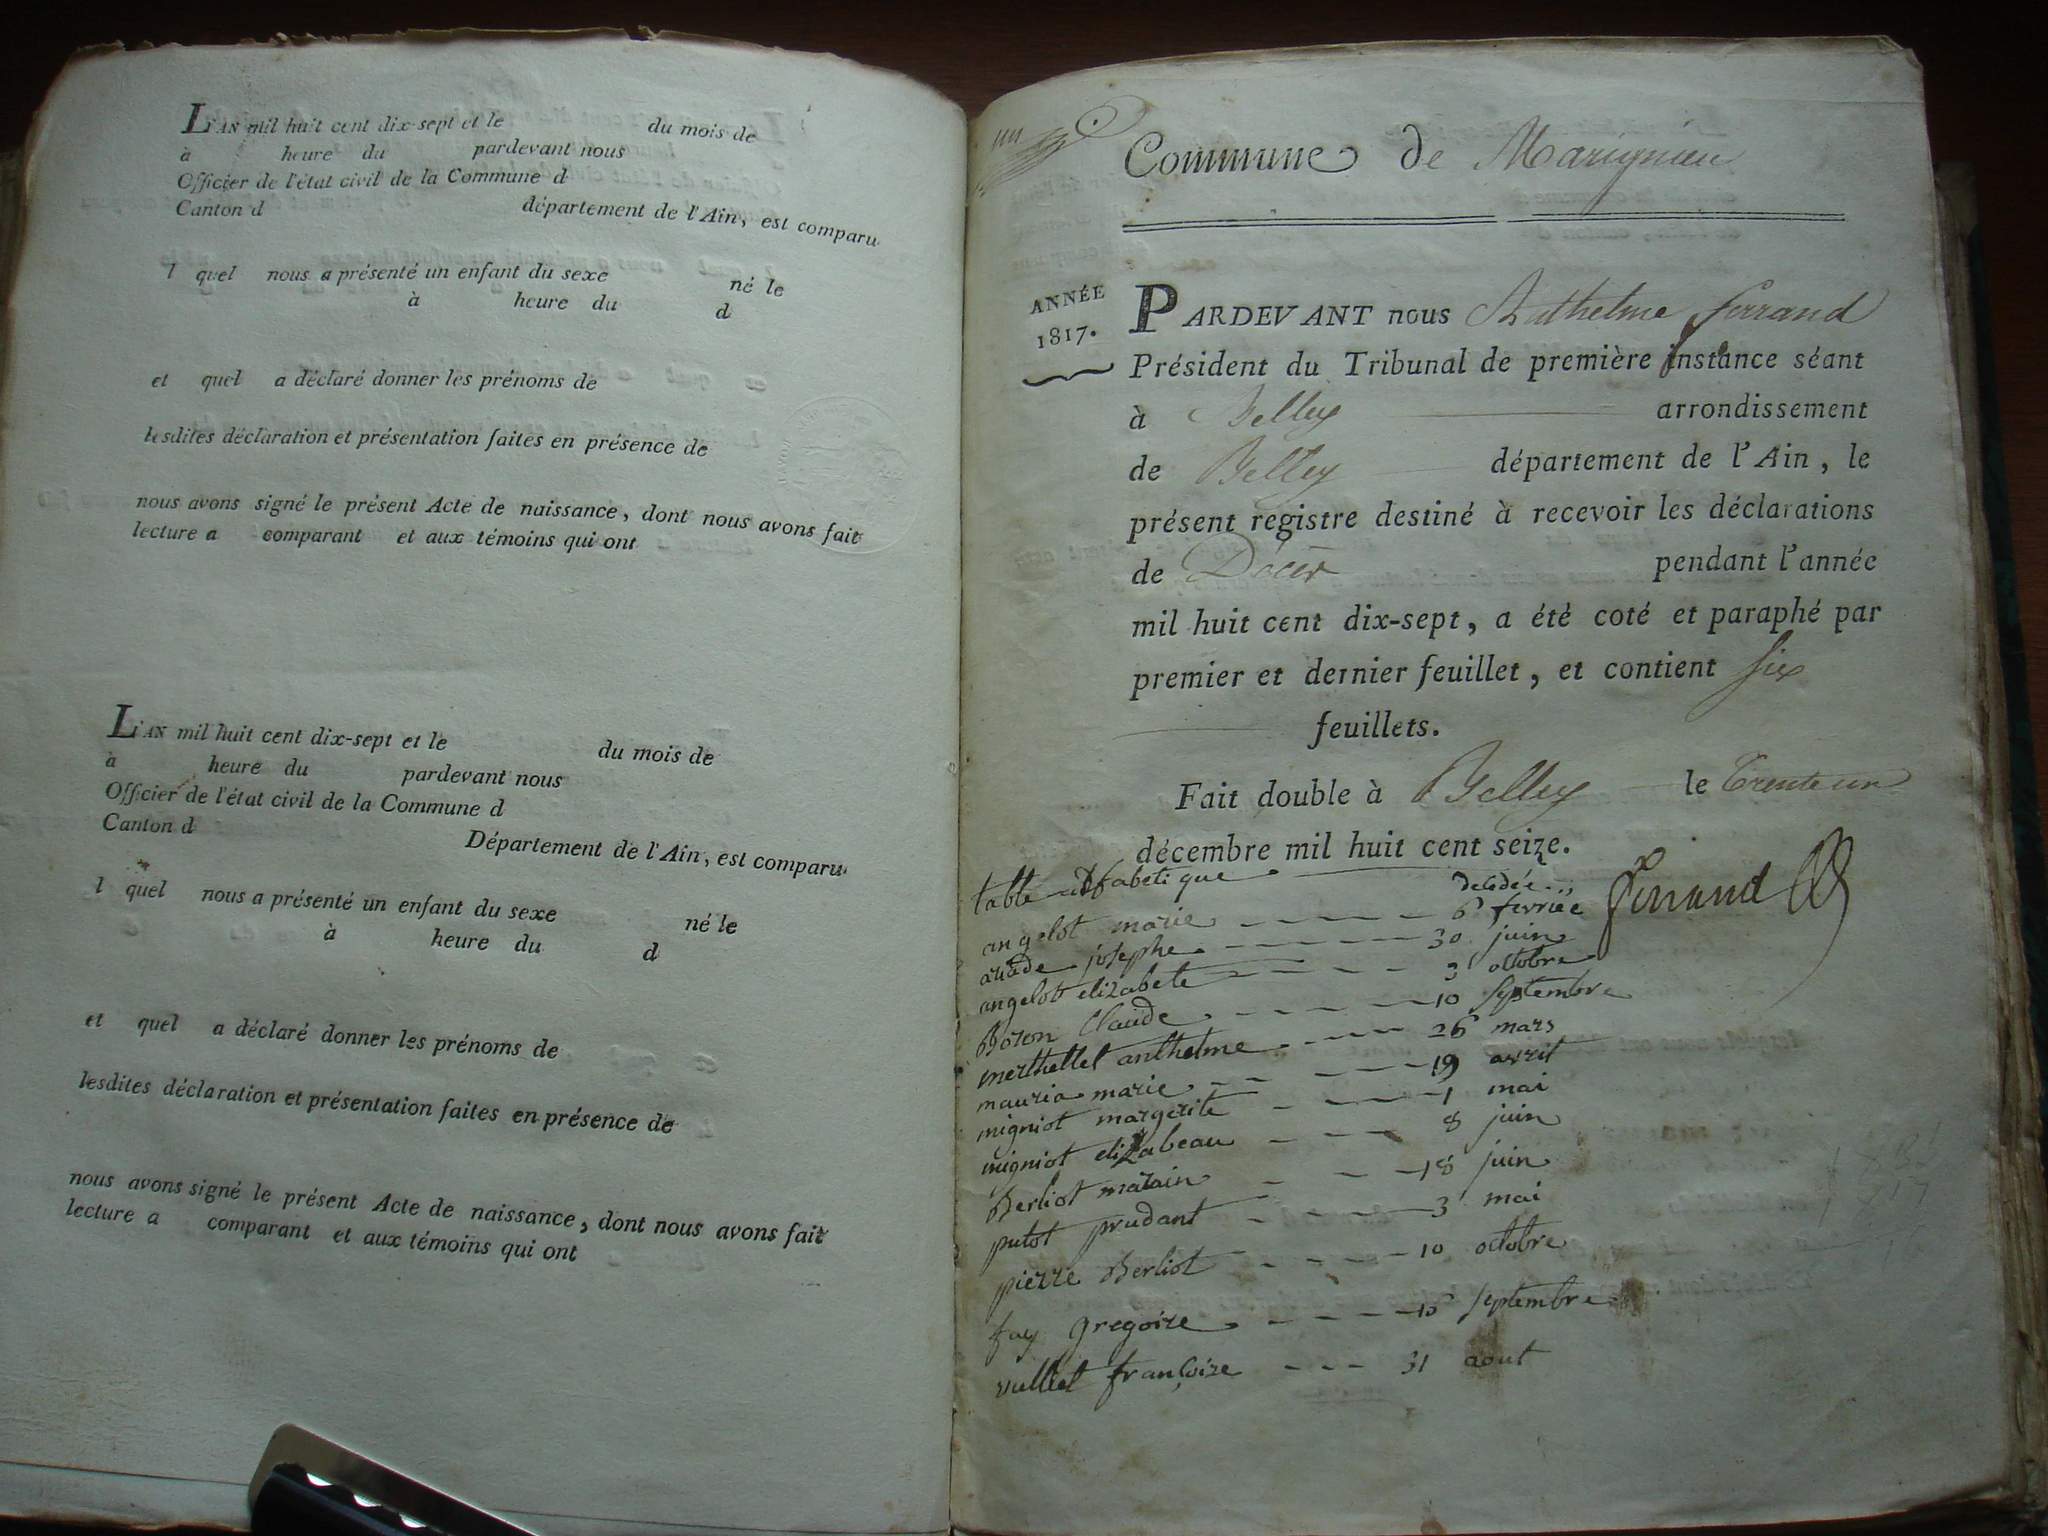 L'AN mil huit cent dix-sept et le du mois de
à heure du pardevant nous
Officier de l'état civil de la Commune d
Canton d département de l'Ain, est comparu
l quel nous a présenté un enfant du sexe né le
à heure du d
et quel a déclaré donner les prénoms de
lesdites déclaration et présentation faites en présence de
nous avons signé le présent Acte de naissance, dont nous avons fait
lecture a comparant et aux témoins qui ont
L'AN mil huit cent dix-sept et le du mois de
à heure du pardevant nous
Officier de l'état civil de la Commune d
Canton d Département de l'Ain, est comparu
l quel nous a présenté un enfant du sexe né le
à heure du d
et quel a déclaré donner les prénoms de
lesdites déclaration et présentation faites en présence de
nous avons signé le présent Acte de naissance, dont nous avons fait
lecture a comparant et aux témoins qui ont
un
Commune de Marignieu
ANNÉE
1817.
PARDEVANT nous Anthelme ferrand
Président du Tribunal de première instance séant
à Belley arrondissement
de Belley département de l'Ain, le
présent registre destiné à recevoir les déclarations
de Décès pendant l'année
mil huit cent dix-sept, a été coté et paraphé par
premier et dernier feuillet, et contient six
feuillets.
Fait double à Belley le trente un
décembre mil huit cent seize.
ferrand
table alfabetique
angelot marie 6 fevrier
josephe 30 juin
angelot elizabete 3 octobre
Bozon Claude 10 septembre
merthellet anthelme 26 mars
mauria marie 19 avril
migniot margerite 1 mai
migniot elizabeau 8 juin
Berliot marain 18 juin
putot prudant 3 mai
pierre Berliot 10 octobre
fay gregoire septembre
vulliet françoize 31 aout